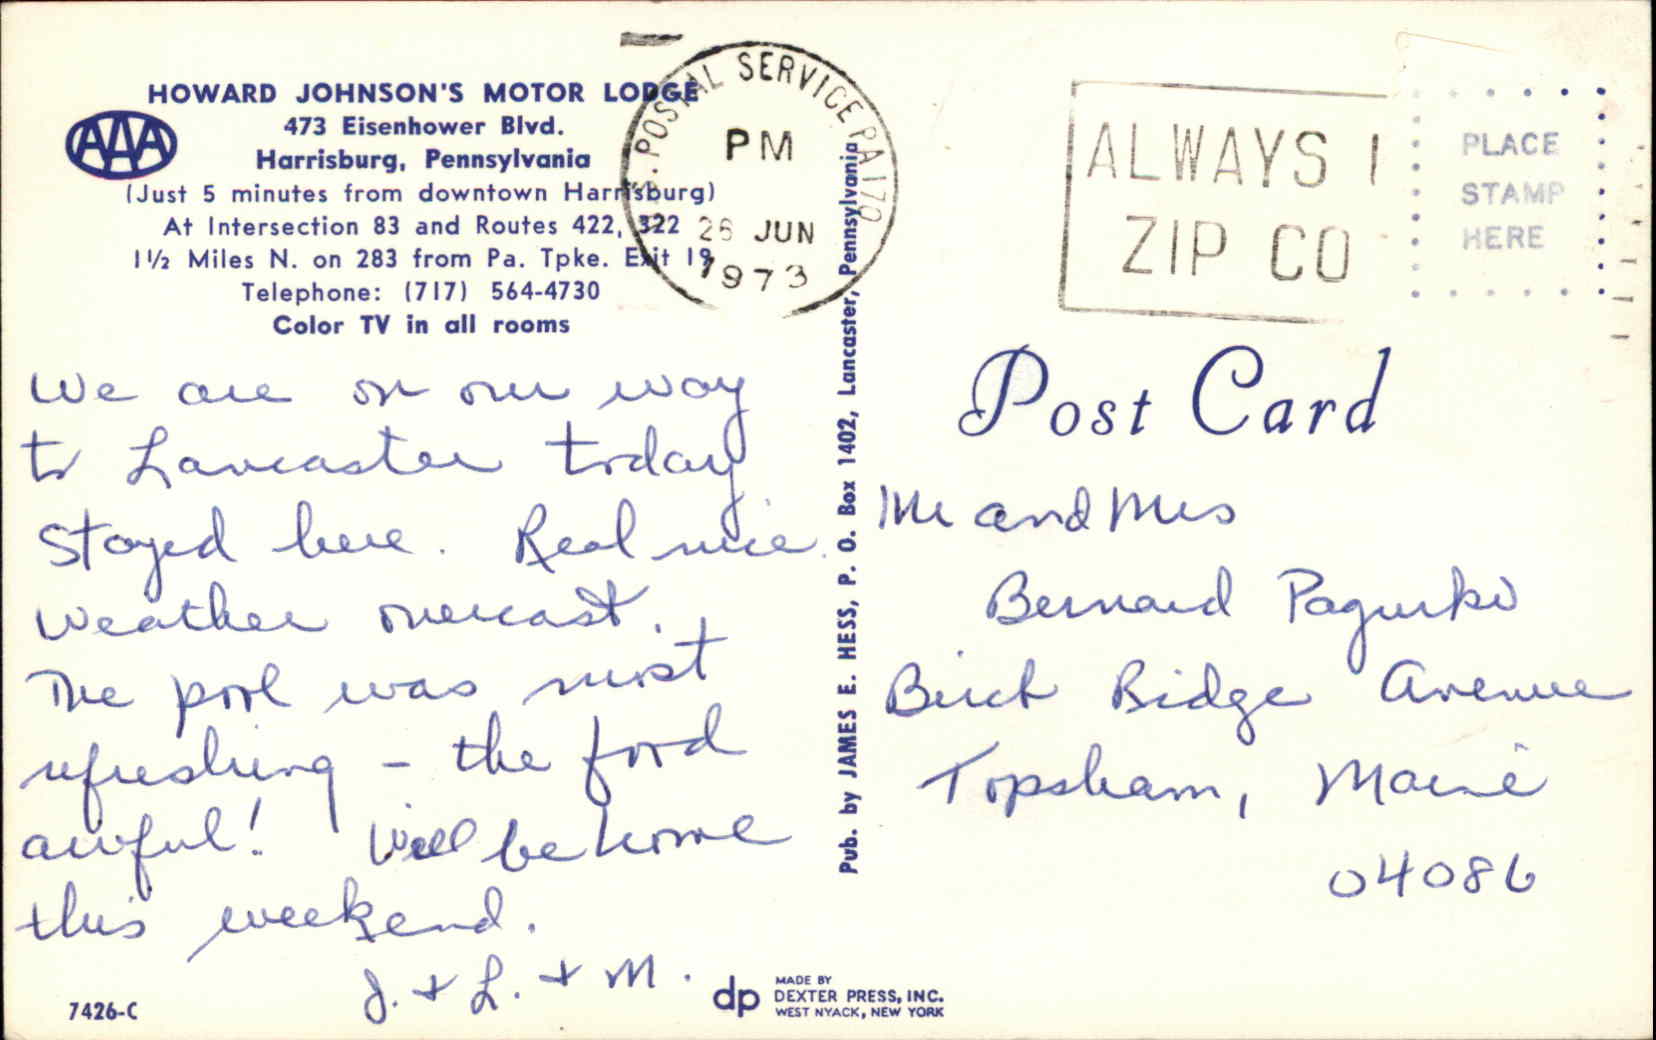 HOWARD JOHNSON'S MOTOR LODGE
AAA
473 Eisenhower Blvd.
Harrisburg, Pennsylvania
(Just 5 minutes from downtown Harrisburg)
At Intersection 83 and Routes 422, 322
1½ Miles N. on 283 from Pa. Tpke. Exit 19
Telephone: (717) 564-4730
Color TV in all rooms
U.S. POSTAL SERVICE PA 170
PM
26 JUN
1973
ALWAYS
ZIP CO
PLACE
STAMP
HERE
We are on our way
to Lancaster today
Stayed here. Real nice.
Weather overcast.
The pool was most
refreshing - the food
awful! Will be home
this weekend.
J. + L. + M.
7426-C
Pub. by JAMES E. HESS, P. O. Box 1402, Lancaster, Pennsylvania
dp
MADE BY
DEXTER PRESS, INC.
WEST NYACK, NEW YORK
Post Card
Mr and Mrs
Bernard
Birch Ridge Avenue
Topsham, Maine
04086